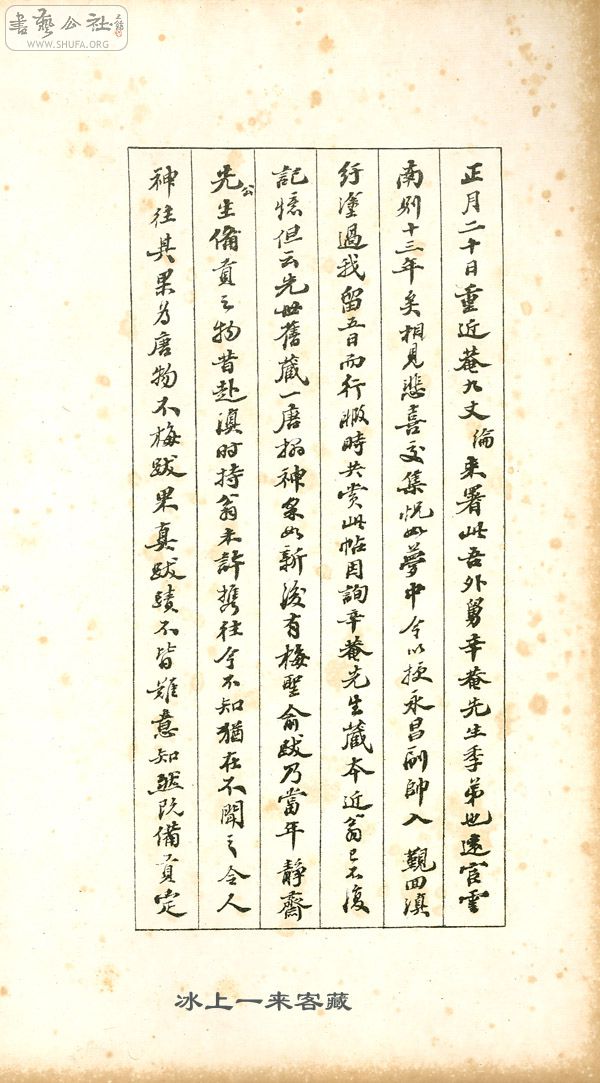 書藝公社
WWW.SHUFA.ORG
正月二十日重近菴九丈倫來署此吾外舅幸菴先生季弟也遠官雲
南別十三年矣相見悲喜交集怳如夢中今以授永昌副帥入覲回滇
紆塗過我留五日而行暇時共賞此帖因詢幸菴先生藏本近翁已不復
記憶但云先世舊藏一唐搨神采如新後有梅聖俞跋乃當年靜齋
先公生備貢之物昔赴滇時持翁未許攜往今不知猶在不聞之令人
神往其果為唐物不梅跋果真跋蹟不皆難意知然既備貢定
冰上一来客藏